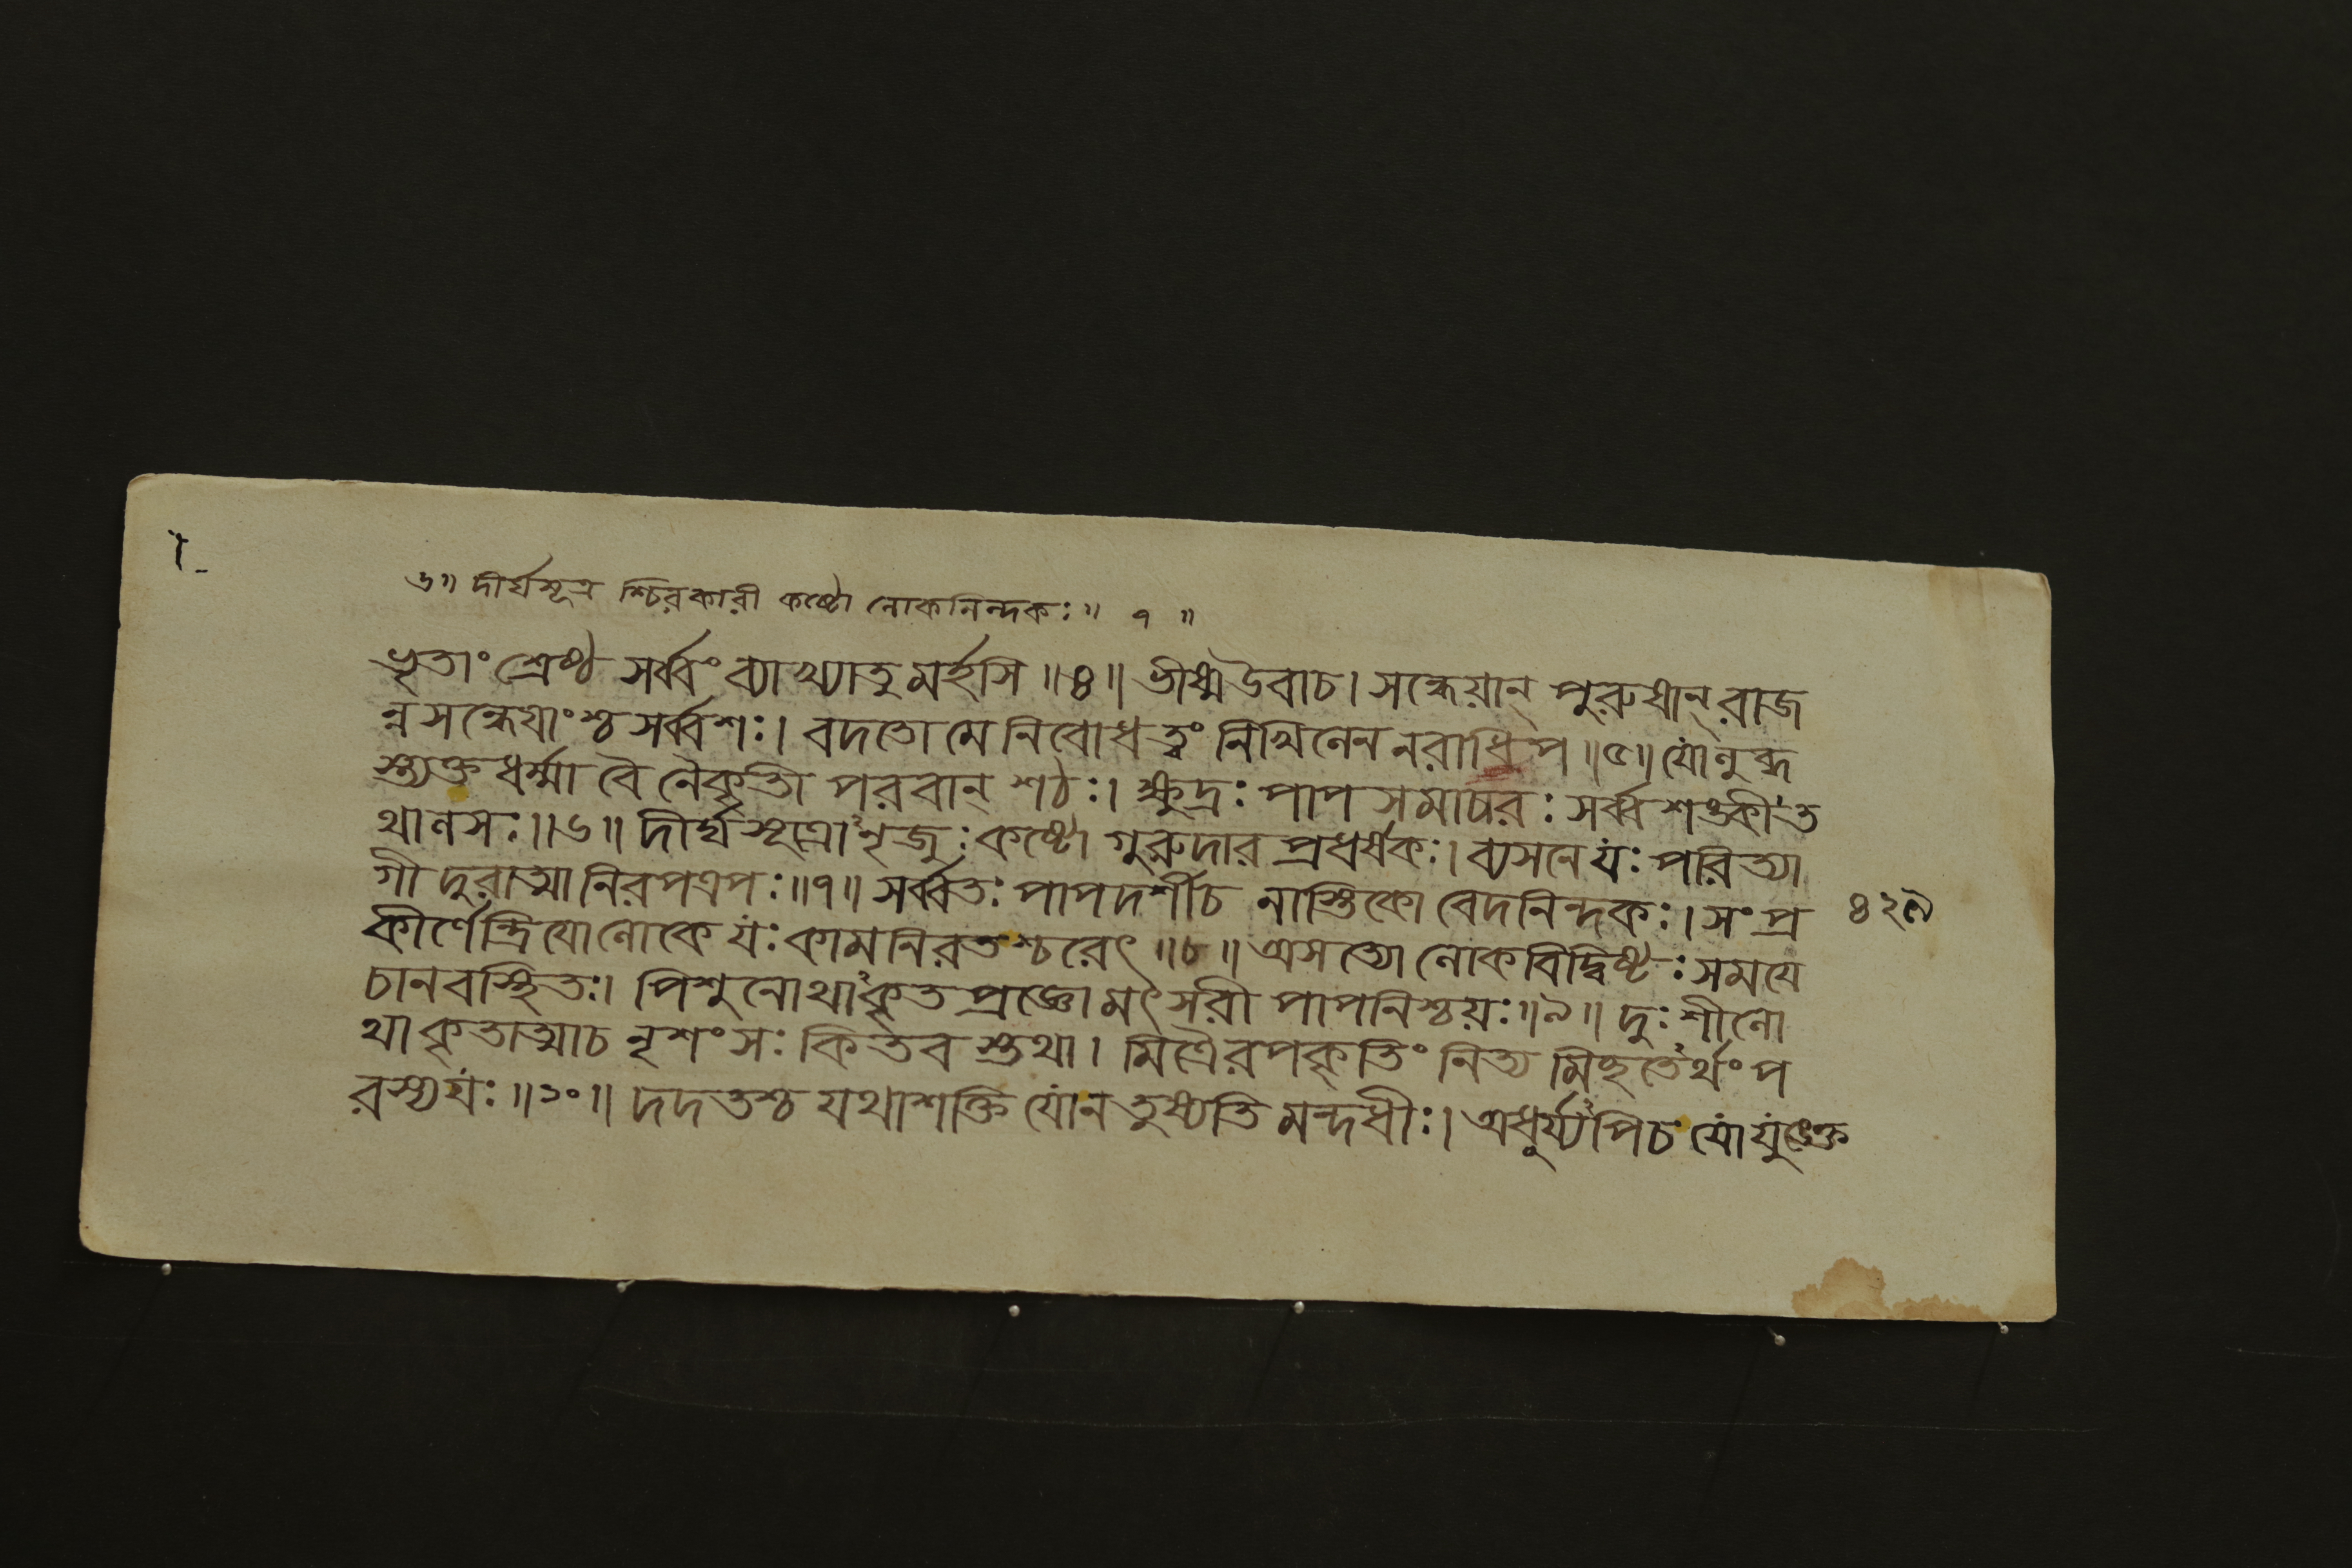 ৬॥ দীর্ঘসূত্র শ্চিরকারী কষ্টো লোকনিন্দকঃ॥ ৭ ॥
ভৃতাং শ্রেষ্ঠ সর্ব্বং ব্যাখ্যাতু মর্হসি ॥৪॥ ভীষ্মউবাচ। সন্ধেয়ান্ পুরুষান্ রাজ
ন্নসন্ধেয়াংশ্চ সর্ব্বশঃ। বদতো মে নিবোধ ত্বং নিখিলেন নরাধিপ ॥৫॥ যোলুব্ধ
স্ত্যক্তধর্ম্মা বৈ নৈকৃতী পরবান্ শঠঃ। ক্ষুদ্রঃ পাপসমাচারঃ সর্ব্বশঙ্কীত
থালসঃ॥৬॥ দীর্ঘসূত্রোঽনৃজুঃ কষ্টো গুরুদারপ্রধর্ষকঃ। ব্যসনে যঃ পরিত্যা
গী দুরাত্মা নিরপত্রপঃ॥৭॥ সর্ব্বতঃ পাপদর্শীচ নাস্তিকো বেদনিন্দকঃ। সংপ্র
কীর্ণেন্দ্রিয়োলোকে যঃ কামনিরতশ্চরেৎ ॥৮॥ অসত্যো লোকবিদ্বিষ্টঃ সময়ে
চানবস্থিতঃ। পিশুনোথাঽকৃতপ্রজ্ঞো মৎসরী পাপনিশ্চয়ঃ॥৯॥ দুঃশীলো
থাকৃতাত্মাচ নৃশংসঃ কিতবস্তথা। মিত্রৈরপকৃতিং নিত্যমিচ্ছতেঽর্থং প
রস্যযঃ॥১০॥ দদতশ্চ যথাশক্তি যোন তুষ্যতি মন্দধীঃ। অধৈর্য্যঽপিচ যো যুংক্তে
৪২৯